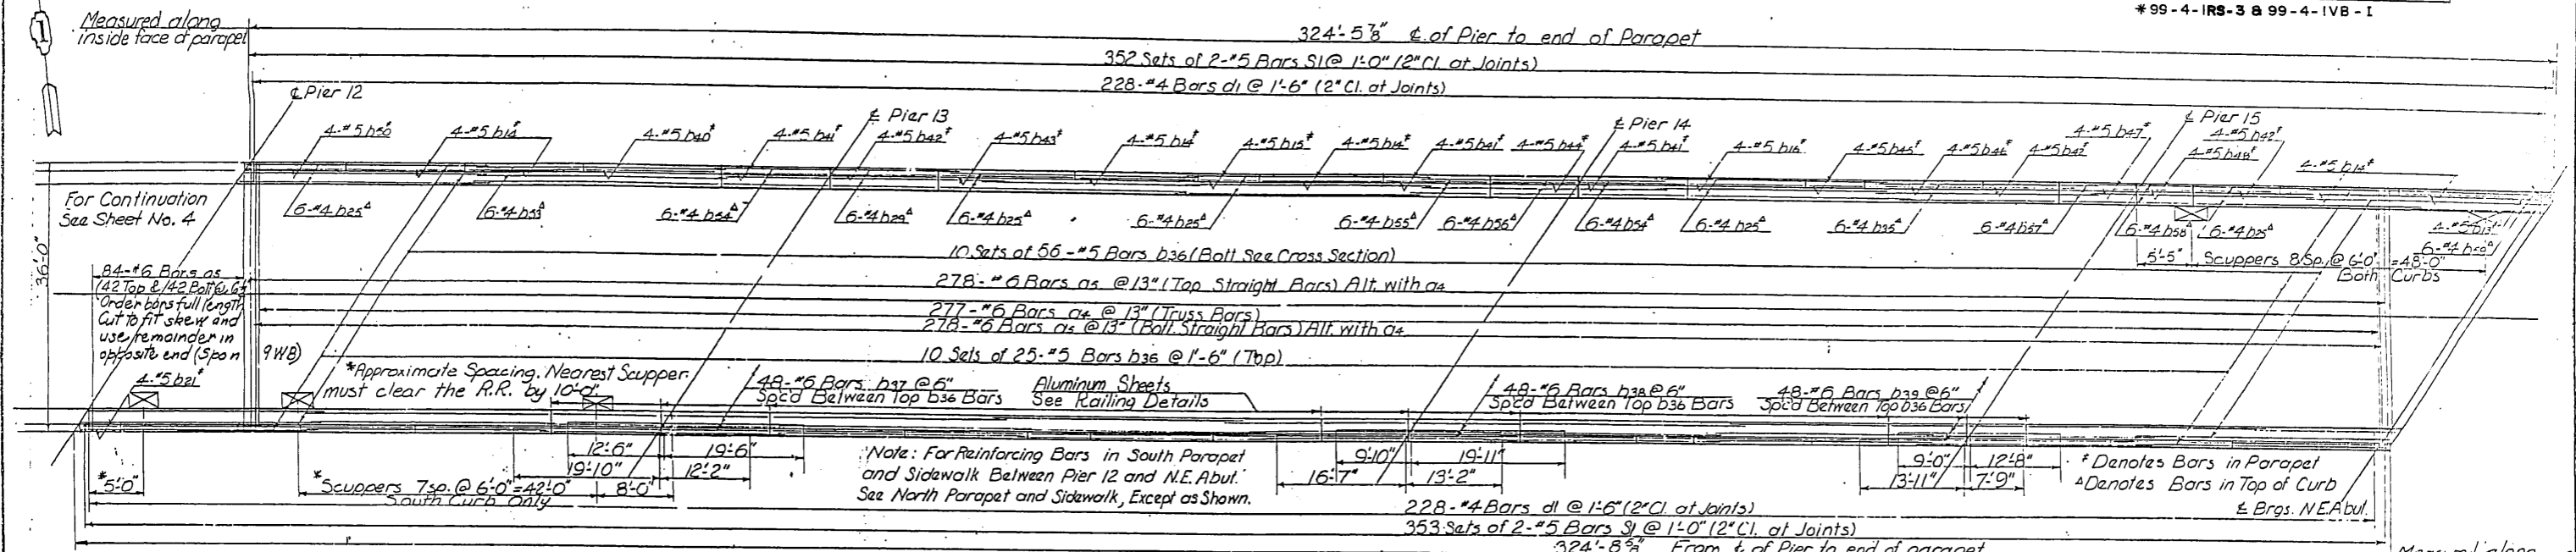 *99-4-1RS-3 & 99-4-1VB-1
Measured along
inside face of parapet
324'-5⅞" ℄ of Pier to end of Parapet
352 Sets of 2-#5 Bars S1 @ 1'-0" (2" Cl. at Joints)
228-#4 Bars d1 @ 1'-6" (2" Cl. at Joints)
℄ Pier 12
℄ Pier 13
℄ Pier 14
℄ Pier 15
4-#5 b50‡
4-#5 b14‡
4-#5 b40‡
4-#5 b41‡
4-#5 b42‡
4-#5 b43‡
4-#5 b14‡
4-#5 b15‡
4-#5 b14‡
4-#5 b41‡
4-#5 b44‡
4-#5 b41‡
4-#5 b16‡
4-#5 b45‡
4-#5 b46‡
4-#5 b42‡
4-#5 b47‡
4-#5 b42‡
4-#5 b48‡
4-#5 b14‡
For Continuation
See Sheet No. 4
6-#4 b25Δ
6-#4 b53Δ
6-#4 b54Δ
6-#4 b29Δ
6-#4 b25Δ
6-#4 b25Δ
6-#4 b55Δ
6-#4 b56Δ
6-#4 b54Δ
6-#4 b25Δ
6-#4 b35Δ
6-#4 b57Δ
6-#4 b58Δ
6-#4 b25Δ
4-#5 b13‡
6-#4 b59Δ
36'-0"
10 Sets of 56-#5 Bars b36 (Bott. See Cross Section)
5'-5"
Scuppers 8 Sp. @ 6'-0" = 48'-0"
Both Curbs
84-#6 Bars a5
(42 Top & 42 Bott. @ 6"
Order bars full length
Cut to fit skew and
use remainder in
opposite end (Span 9WB)
278-#6 Bars a5 @ 13" (Top Straight Bars) Alt. with a4
277-#6 Bars a4 @ 13" (Truss Bars)
278-#6 Bars a5 @ 13" (Bott. Straight Bars) Alt. with a4
10 Sets of 25-#5 Bars b36 @ 1'-6" (Top)
4-#5 b21‡
*Approximate Spacing. Nearest Scupper
must clear the R.R. by 10'-0".
48-#6 Bars b37 @ 6"
Spc'd Between Top b36 Bars
Aluminum Sheets
See Railing Details
48-#6 Bars b38 @ 6"
Spc'd Between Top b36 Bars
48-#6 Bars b39 @ 6"
Spc'd Between Top b36 Bars
12'-6"
19'-6"
19'-10"
12'-2"
*5'-0"
*Scuppers 7 sp. @ 6'-0" = 42'-0"
South Curb Only
8'-0"
Note: For Reinforcing Bars in South Parapet
and Sidewalk Between Pier 12 and N.E. Abut.
See North Parapet and Sidewalk, Except as Shown.
9'-10"
19'-11"
16'-7"
13'-2"
9'-0"
12'-8"
13'-11"
7'-9"
‡ Denotes Bars in Parapet
Δ Denotes Bars in Top of Curb
℄ Brgs. N.E. Abut.
228-#4 Bars d1 @ 1'-6" (2" Cl. at Joints)
353 Sets of 2-#5 Bars S1 @ 1'-0" (2" Cl. at Joints)
324'-8⅝" From ℄ of Pier to end of parapet
Measured along